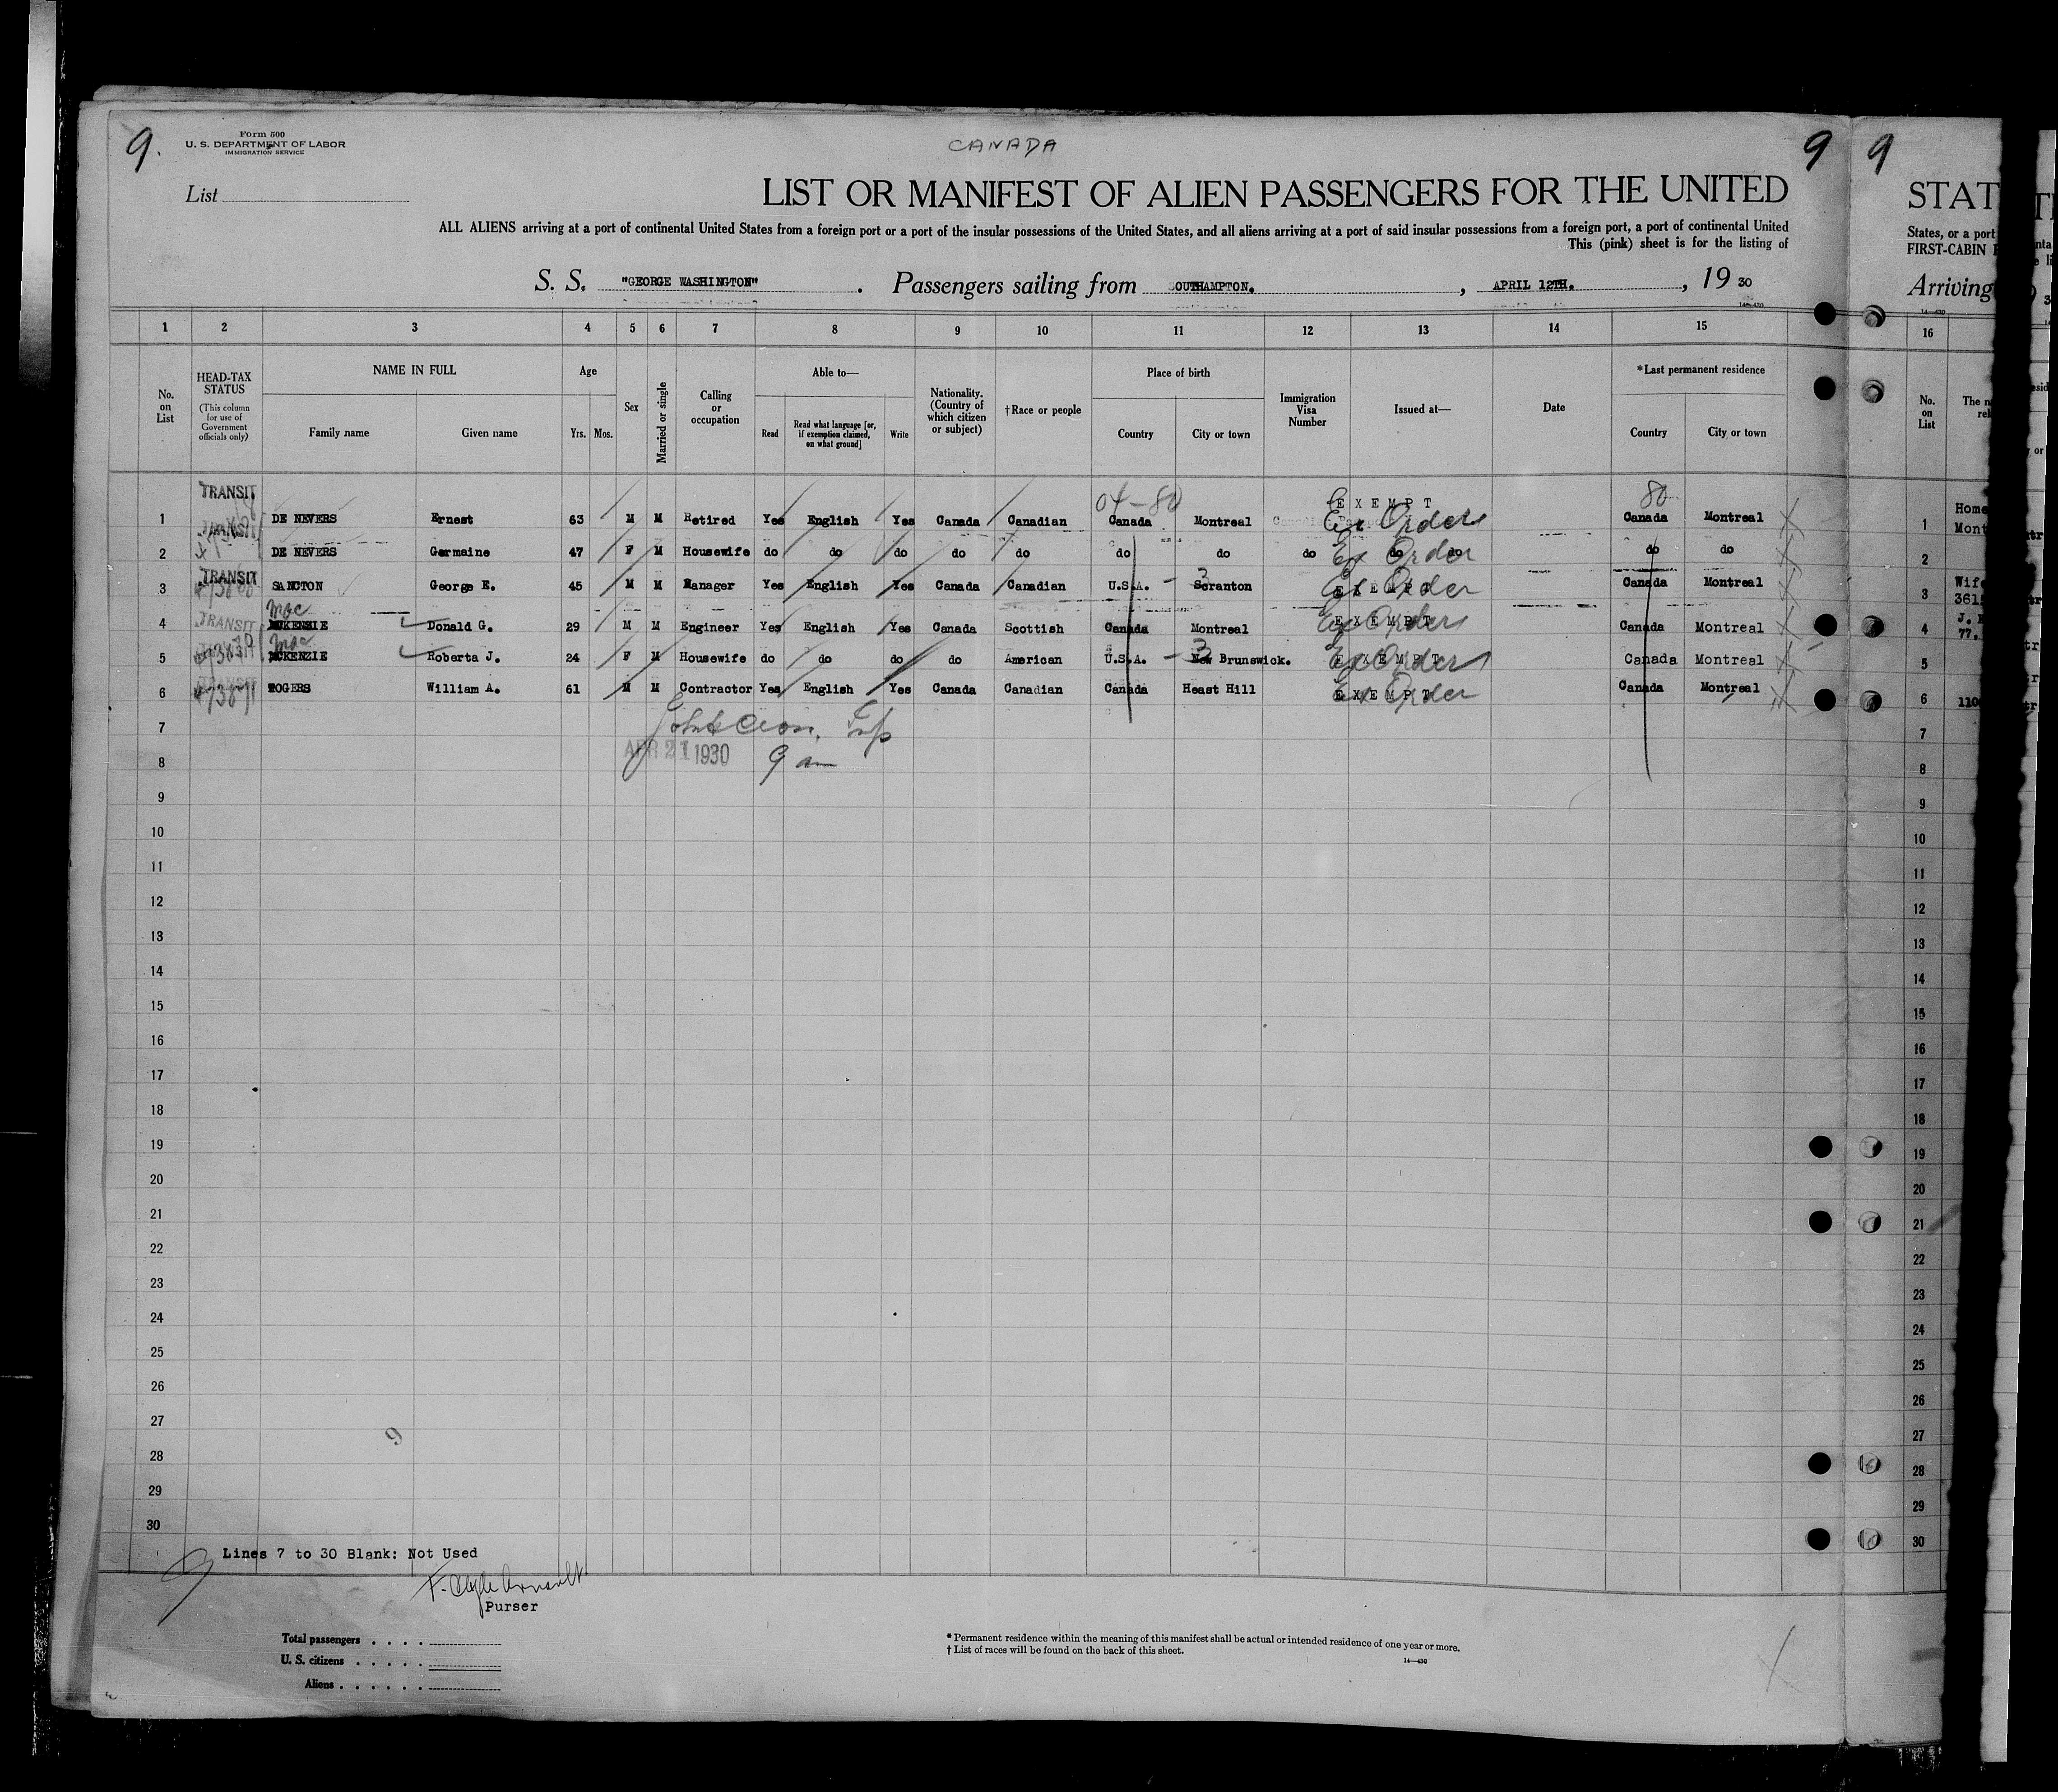 9.
Form 500
U. S. DEPARTMENT OF LABOR
IMMIGRATION SERVICE
CANADA
9
9
List
LIST OR MANIFEST OF ALIEN PASSENGERS FOR THE UNITED
STAT
ALL ALIENS arriving at a port of continental United States from a foreign port or a port of the insular possessions of the United States, and all aliens arriving at a port of said insular possessions from a foreign port, a port of continental United
States, or a port
This (pink) sheet is for the listing of
FIRST-CABIN
S. S. "GEORGE WASHINGTON" . Passengers sailing from OUTHAMPTON. , APRIL 12TH. , 19 30
Arriving
14—430
1 2 3 4 5 6 7 8 9 10 11 12 13 14 15 16
No. on List
HEAD-TAX STATUS
(This column for use of Government officials only)
NAME IN FULL
Family name
Given name
Age
Yrs. Mos.
Sex
Married or single
Calling or occupation
Able to—
Read
Read what language [or, if exemption claimed, on what ground]
Write
Nationality. (Country of which citizen or subject)
†Race or people
Place of birth
Country
City or town
Immigration Visa Number
Issued at—
Date
*Last permanent residence
Country
City or town
No. on List
TRANSIT
04-80
EXEMPT
80
1 DE NEVERS Ernest 63 M M Retired Yes English Yes Canada Canadian Canada Montreal Ex Order Canada Montreal 1 Home
Mont
2 DE NEVERS Germaine 47 F M Housewife do do do do do do do do Ex Order do do do do 2
TRANSIT
3 SANCTON George E. 45 M M Manager Yes English Yes Canada Canadian U.S.A. - 3 Scranton EXEMPT Ex Order Canada Montreal 3 Wife
361
Mac
TRANSIT
4 MCKENZIE Donald G. 29 M M Engineer Yes English Yes Canada Scottish Canada Montreal EXEMPT Ex Order Canada Montreal 4 J.
77.
Mac
5 MCKENZIE Roberta J. 24 F M Housewife do do do do American U.S.A. - 3 New Brunswick. EXEMPT Ex Order Canada Montreal 5
6 ROGERS William A. 61 M M Contractor Yes English Yes Canada Canadian Canada Heast Hill EXEMPT Ex Order Canada Montreal 6 110
7 7
APR 21 1930 9 am
8 8
9 9
10 10
11 11
12 12
13 13
14 14
15 15
16 16
17 17
18 18
19 19
20 20
21 21
22 22
23 23
24 24
25 25
26 26
27 27
9
28 28
29 29
30 30
Lines 7 to 30 Blank: Not Used
Purser
Total passengers
U. S. citizens
Aliens
* Permanent residence within the meaning of this manifest shall be actual or intended residence of one year or more.
† List of races will be found on the back of this sheet.
14—430